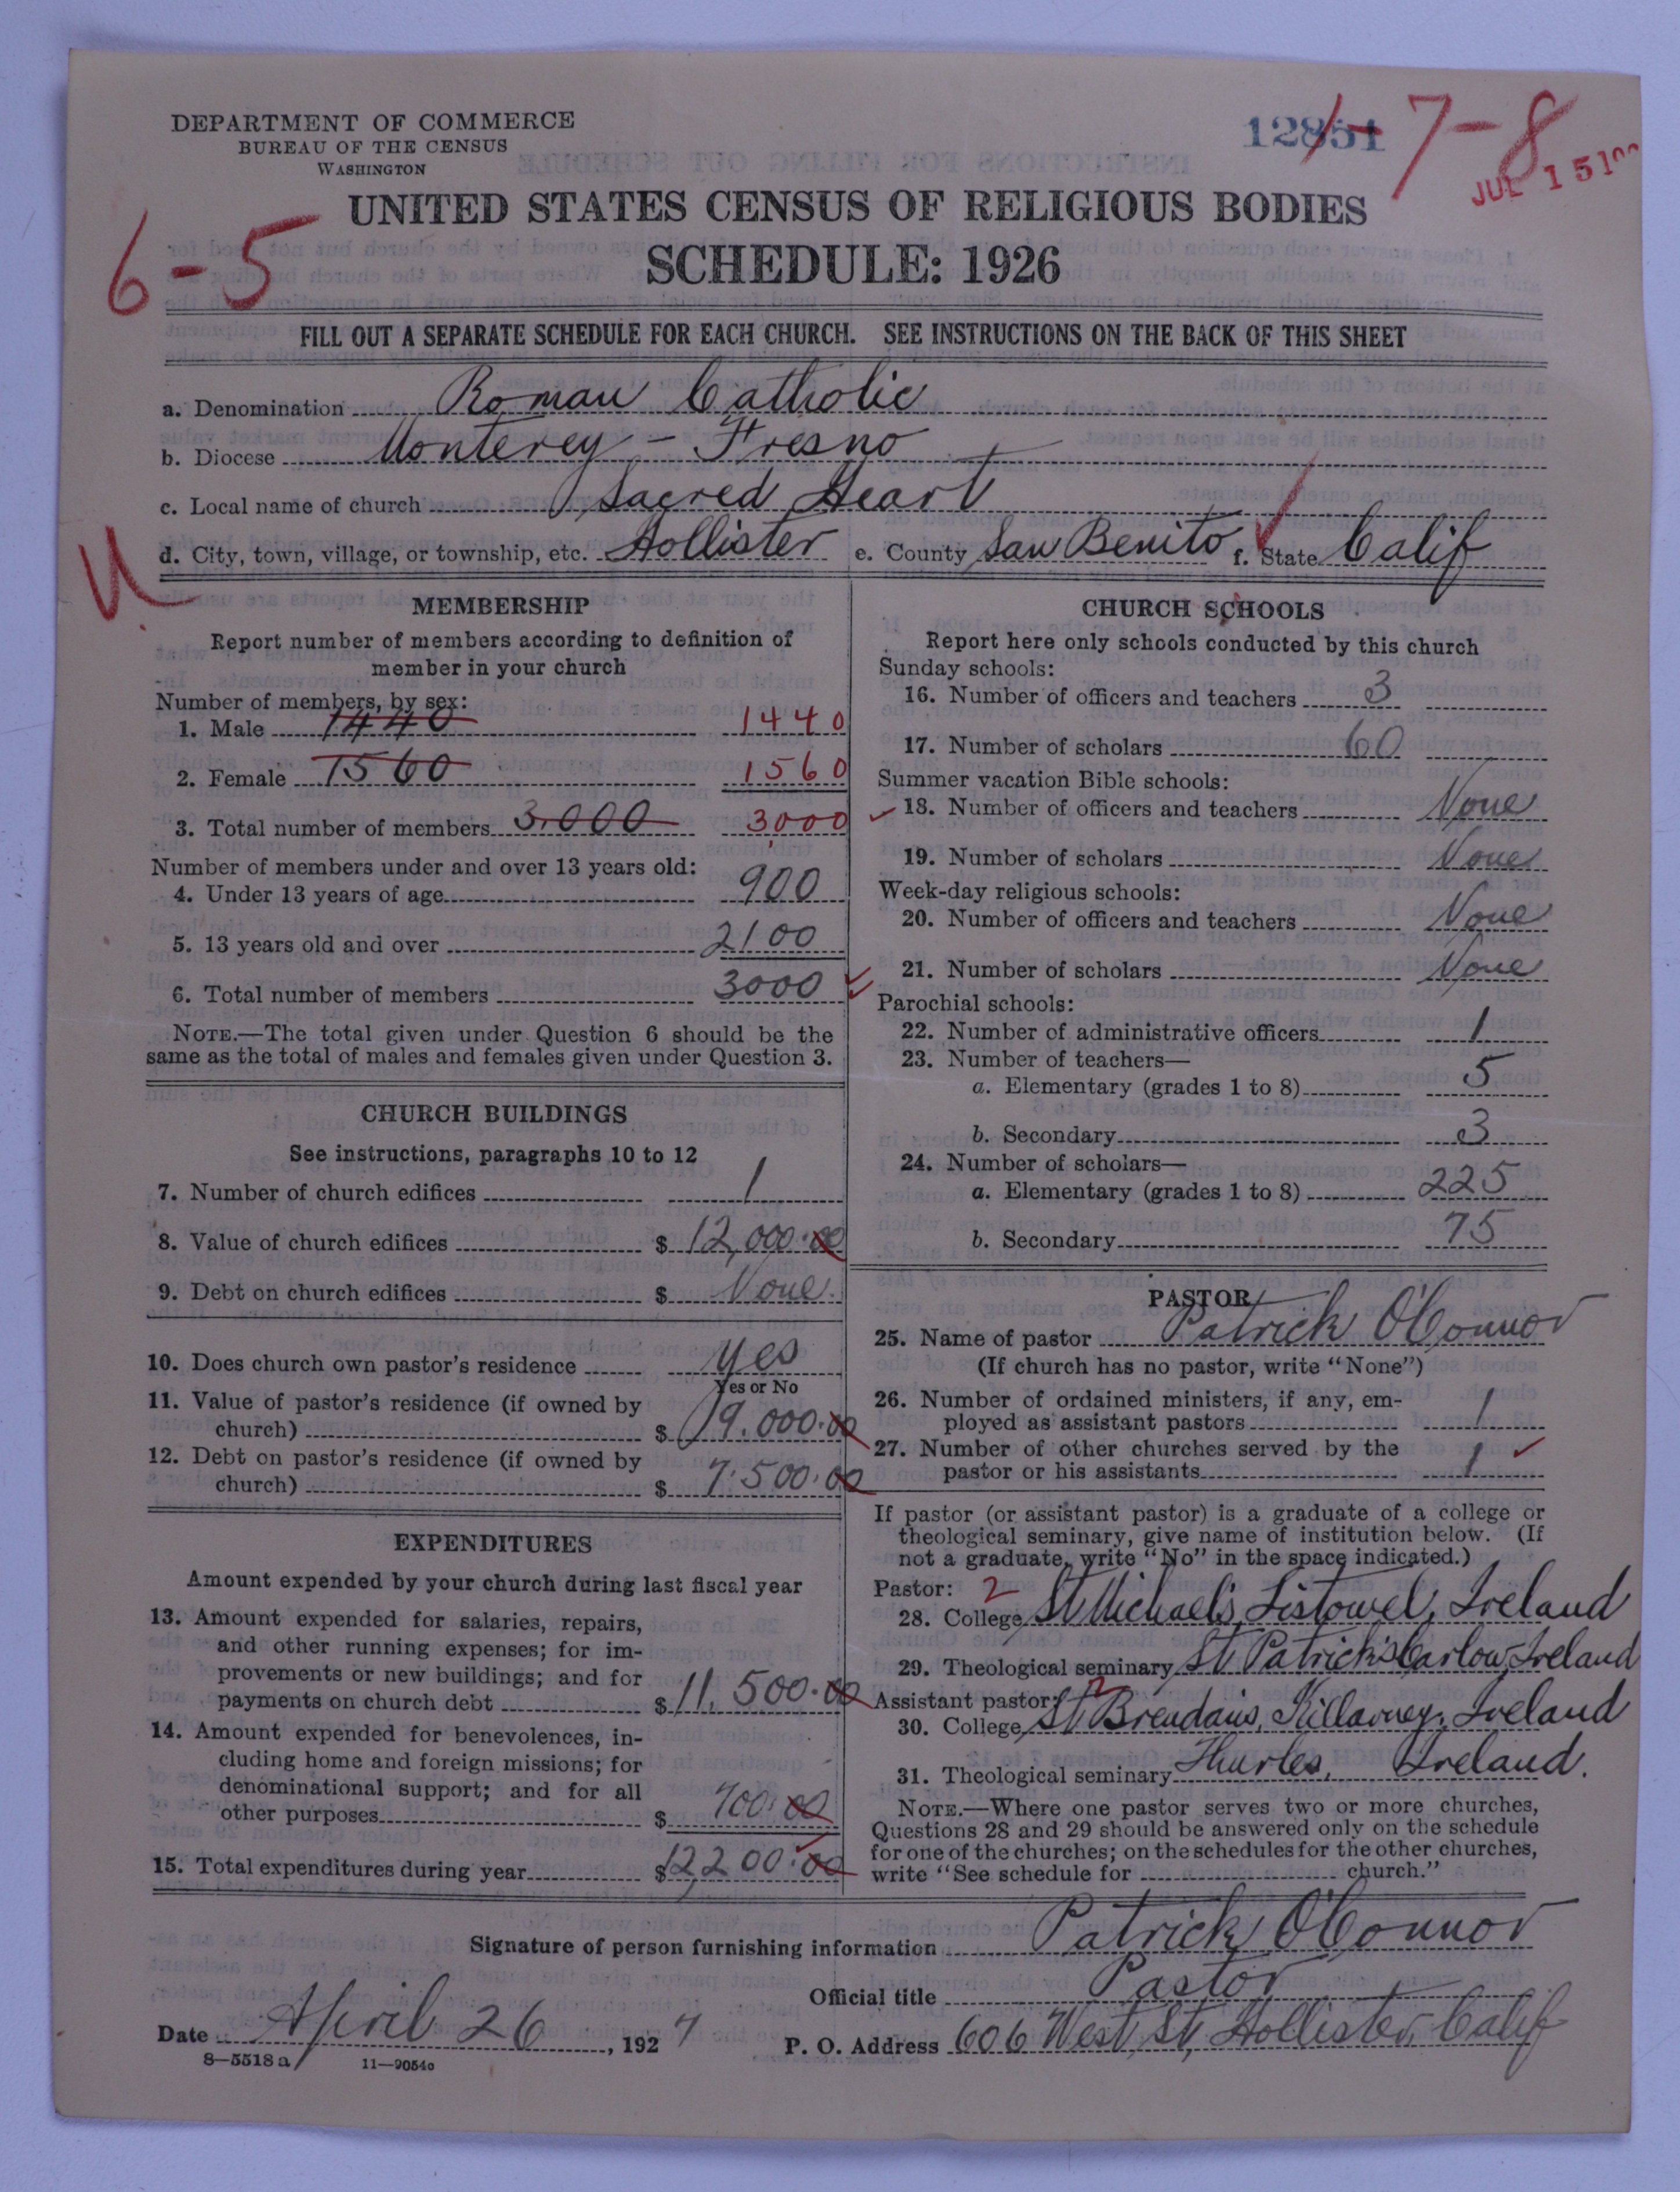 DEPARTMENT OF COMMERCE
BUREAU OF THE CENSUS
WASHINGTON
12851
7-8
JUL 15
UNITED STATES CENSUS OF RELIGIOUS BODIES
SCHEDULE: 1926
6-5
FILL OUT A SEPARATE SCHEDULE FOR EACH CHURCH. SEE INSTRUCTIONS ON THE BACK OF THIS SHEET
a. Denomination Roman Catholic
b. Diocese Monterey - Fresno
c. Local name of church Sacred Heart
d. City, town, village, or township, etc. Hollister e. County San Benito f. State Calif
MEMBERSHIP
Report number of members according to definition of
member in your church
Number of members, by sex:
1. Male 1440 1440
2. Female 1560 1560
3. Total number of members 3,000 3000
Number of members under and over 13 years old:
4. Under 13 years of age 900
5. 13 years old and over 2100
6. Total number of members 3000
NOTE.—The total given under Question 6 should be the
same as the total of males and females given under Question 3.
CHURCH BUILDINGS
See instructions, paragraphs 10 to 12
7. Number of church edifices 1
8. Value of church edifices $ 12,000.00
9. Debt on church edifices $ None.
10. Does church own pastor's residence yes
Yes or No
11. Value of pastor's residence (if owned by
church) $ 19.000.00
12. Debt on pastor's residence (if owned by
church) $ 7.500.00
EXPENDITURES
Amount expended by your church during last fiscal year
13. Amount expended for salaries, repairs,
and other running expenses; for im-
provements or new buildings; and for
payments on church debt $ 11.500.00
14. Amount expended for benevolences, in-
cluding home and foreign missions; for
denominational support; and for all
other purposes $ 700.00
15. Total expenditures during year $ 12200.00
CHURCH SCHOOLS
Report here only schools conducted by this church
Sunday schools:
16. Number of officers and teachers 3
17. Number of scholars 60
Summer vacation Bible schools:
18. Number of officers and teachers None
19. Number of scholars None
Week-day religious schools:
20. Number of officers and teachers None
21. Number of scholars None
Parochial schools:
22. Number of administrative officers 1
23. Number of teachers—
a. Elementary (grades 1 to 8) 5
b. Secondary 3
24. Number of scholars—
a. Elementary (grades 1 to 8) 225
b. Secondary 75
PASTOR
25. Name of pastor Patrick O'Connor
(If church has no pastor, write "None")
26. Number of ordained ministers, if any, em-
ployed as assistant pastors 1
27. Number of other churches served by the
pastor or his assistants 1
If pastor (or assistant pastor) is a graduate of a college or
theological seminary, give name of institution below. (If
not a graduate, write "No" in the space indicated.)
Pastor: 2
28. College St Michael's, Listowel, Ireland
29. Theological seminary St Patrick's Carlow, Ireland
Assistant pastor: 2
30. College St Brendan's, Killarney, Ireland
31. Theological seminary Thurles, Ireland.
NOTE.—Where one pastor serves two or more churches,
Questions 28 and 29 should be answered only on the schedule
for one of the churches; on the schedules for the other churches,
write "See schedule for church."
Signature of person furnishing information Patrick O'Connor
Official title Pastor
Date April 26, 1927 P. O. Address 606 West St, Hollister, Calif
8—5518a 11—9054c